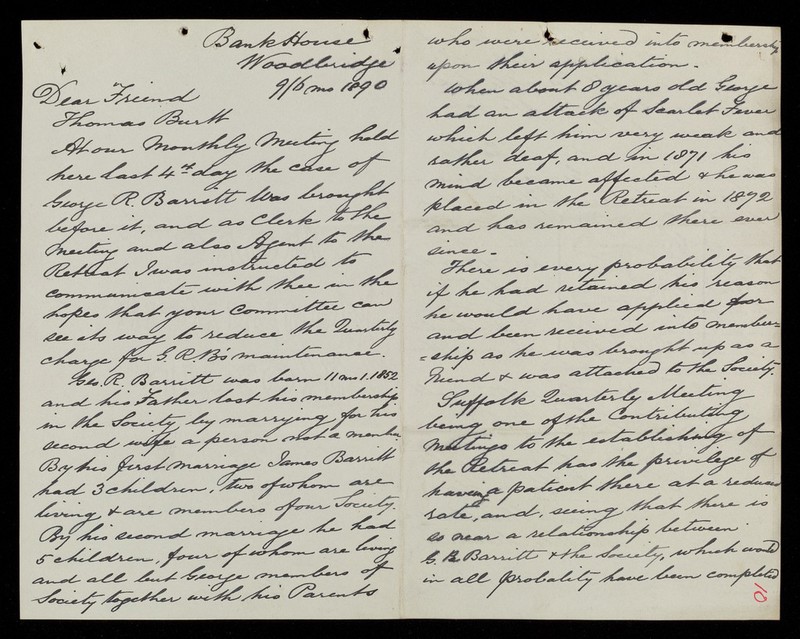 Bank House
Woodbridge
9/6 mo 1890
Dear Friend
Thomas Burtt
At our Monthly Meeting held
here last 4th day the case of
George R. Barritt was brought
before it, and as Clerk to the
Meeting and also Agent to the
Retreat I was instructed to
communicate with thee in the
hopes that your Committee can
see its way to reduce the Quarterly
charge for G. R. B's maintenance.
Geo. R. Barritt was born 11 mo 1. 1852
and his Father lost his membership
in the Society by marrying for his
second wife a person not a member
By his first marriage James Barritt
had 3 children, two of whom are
living & are members of our Society.
By his second marriage he had
5 children, four of whom are living
and all but George members of
Society together with his Parents
who were received into membership
upon their application.
When about 8 years old George
had an attack of Scarlet Fever
which left him very weak and
rather deaf, and in 1871 his
mind became affected & he was
placed in the Retreat in 1872
and has remained there ever
since.
There is every probability that
if he had retained his reason
he would have applied for
and been received into member=
=ship as he was brought up as a
Friend & was attached to the Society.
Suffolk Quarterly Meeting
being one of the Contributing
Meetings to the establishing of
the Retreat has the privilege of
having a patient there at a reduced
rate, and, seeing that there is
so near a relationship between
G. R Barritt & the Society, which would
in all probality have been completed
10